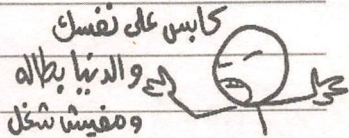 كابس على نفسك
والدنيا بطاله
ومفيش شغل